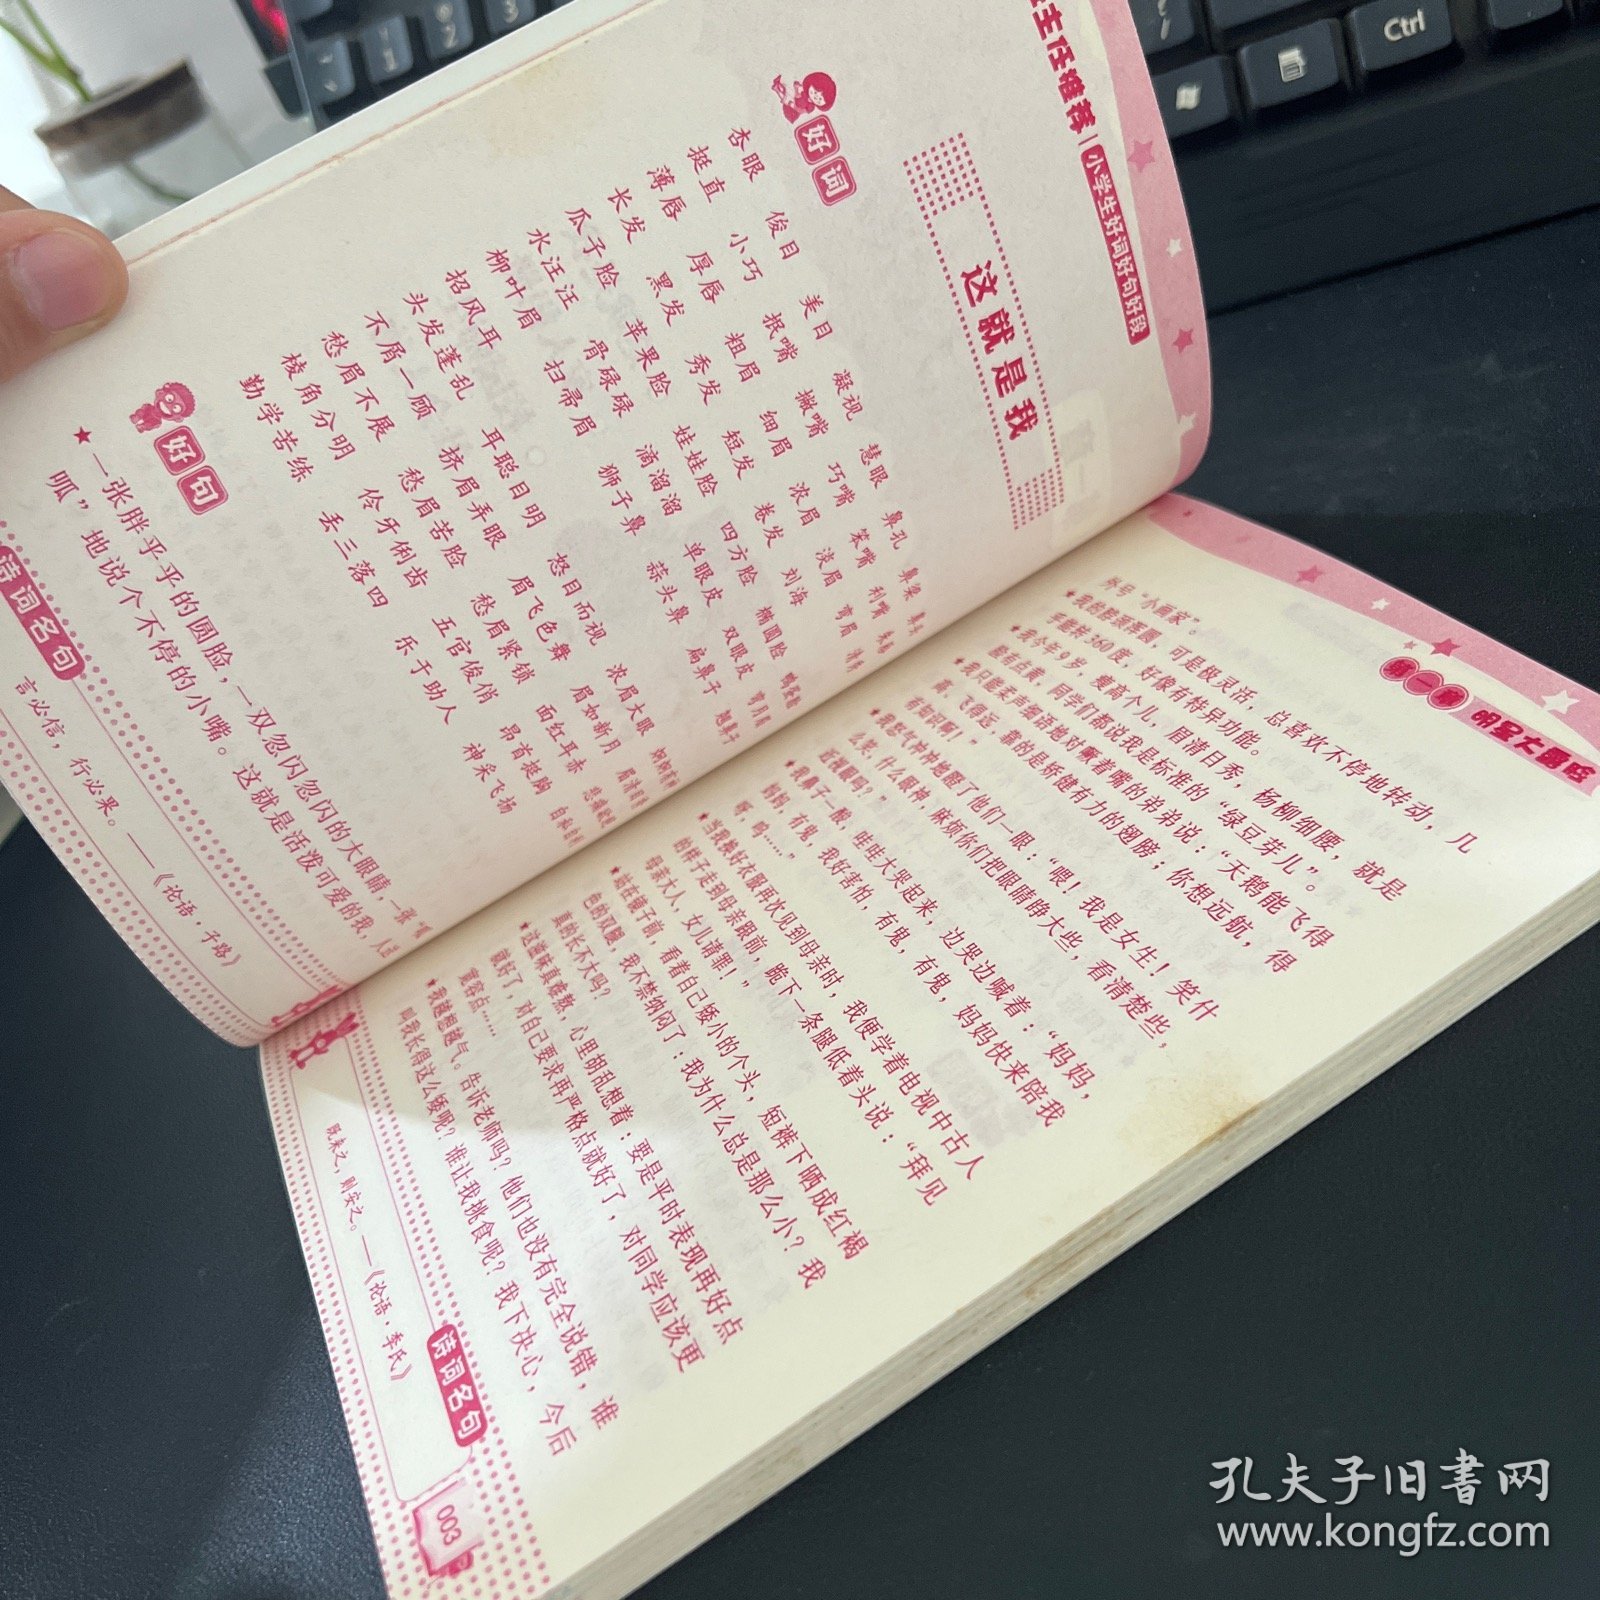 主任推荐
小学生好词好句好段
这就是我
好词
杏眼 俊目 美目 凝视 慧眼 鼻孔 鼻梁
挺直 小巧 抿嘴 撇嘴 巧嘴 笨嘴 利嘴
薄唇 厚唇 粗眉 细眉 浓眉 淡眉 弯眉
长发 黑发 秀发 短发 卷发 刘海
瓜子脸 苹果脸 娃娃脸 四方脸 椭圆脸
水汪汪 骨碌碌 滴溜溜 单眼皮 双眼皮
柳叶眉 扫帚眉 狮子鼻 蒜头鼻 扁鼻子 翘鼻子
招风耳 耳聪目明 怒目而视 浓眉大眼
头发蓬乱 挤眉弄眼 眉飞色舞 眉如新月
不屑一顾 愁眉苦脸 愁眉紧锁 面红耳赤
愁眉不展 伶牙俐齿 五官俊俏 昂首挺胸
棱角分明 丢三落四 乐于助人 神采飞扬
勤学苦练
好句
★一张胖乎乎的圆脸，一双忽闪忽闪的大眼睛，一张“嘴
呱”地说个不停的小嘴。这就是活泼可爱的我，人送
诗词名句
言必信，行必果。——《论语·子路》
第一章
外号“小画家”。
★我的脖颈浑圆，可是做灵活，总喜欢不停地转动，几
乎能转360度，好像有特异功能。
★我今年9岁，瘦高个儿，眉清目秀，杨柳细腰，就是
脸有点黄，同学们都说我是标准的“绿豆芽儿”。
★我只能柔声细语地对噘着嘴的弟弟说：“天鹅能飞得
高、飞得远，靠的是矫健有力的翅膀；你想远航，得
有知识啊！”
★我怒气冲冲地瞪了他们一眼：“喂！我是女生！笑什
么笑，什么眼神，麻烦你们把眼睛睁大些，看清楚些，
近视眼吗？”
★我鼻子一酸，哇哇大哭起来，边哭边喊着：“妈妈，
妈妈，有鬼，我好害怕，有鬼，有鬼，妈妈快来陪我
呀，呜……”
★当我换好衣服再次见到母亲时，我便学着电视中古人
的样子走到母亲跟前，跪下一条腿低着头说：“拜见
母亲大人，女儿请罪！”
★站在镜子前，看着自己矮小的个头，短裤下晒成红褐
色的双腿，我不禁纳闷了：我为什么总是那么小？我
真的长不大吗？
★这滋味真难熬，心里胡乱想着：要是平时表现再好点
就好了，对自己要求再严格点就好了，对同学应该更
宽容点……
★我越想越气。告诉老师吗？他们也没有完全说错，谁
叫我长得这么矮呢？谁让我挑食呢？我下决心，今后
既来之，则安之。——《论语·季氏》
诗词名句
003
Ctrl
孔夫子旧书网
www.kongfz.com